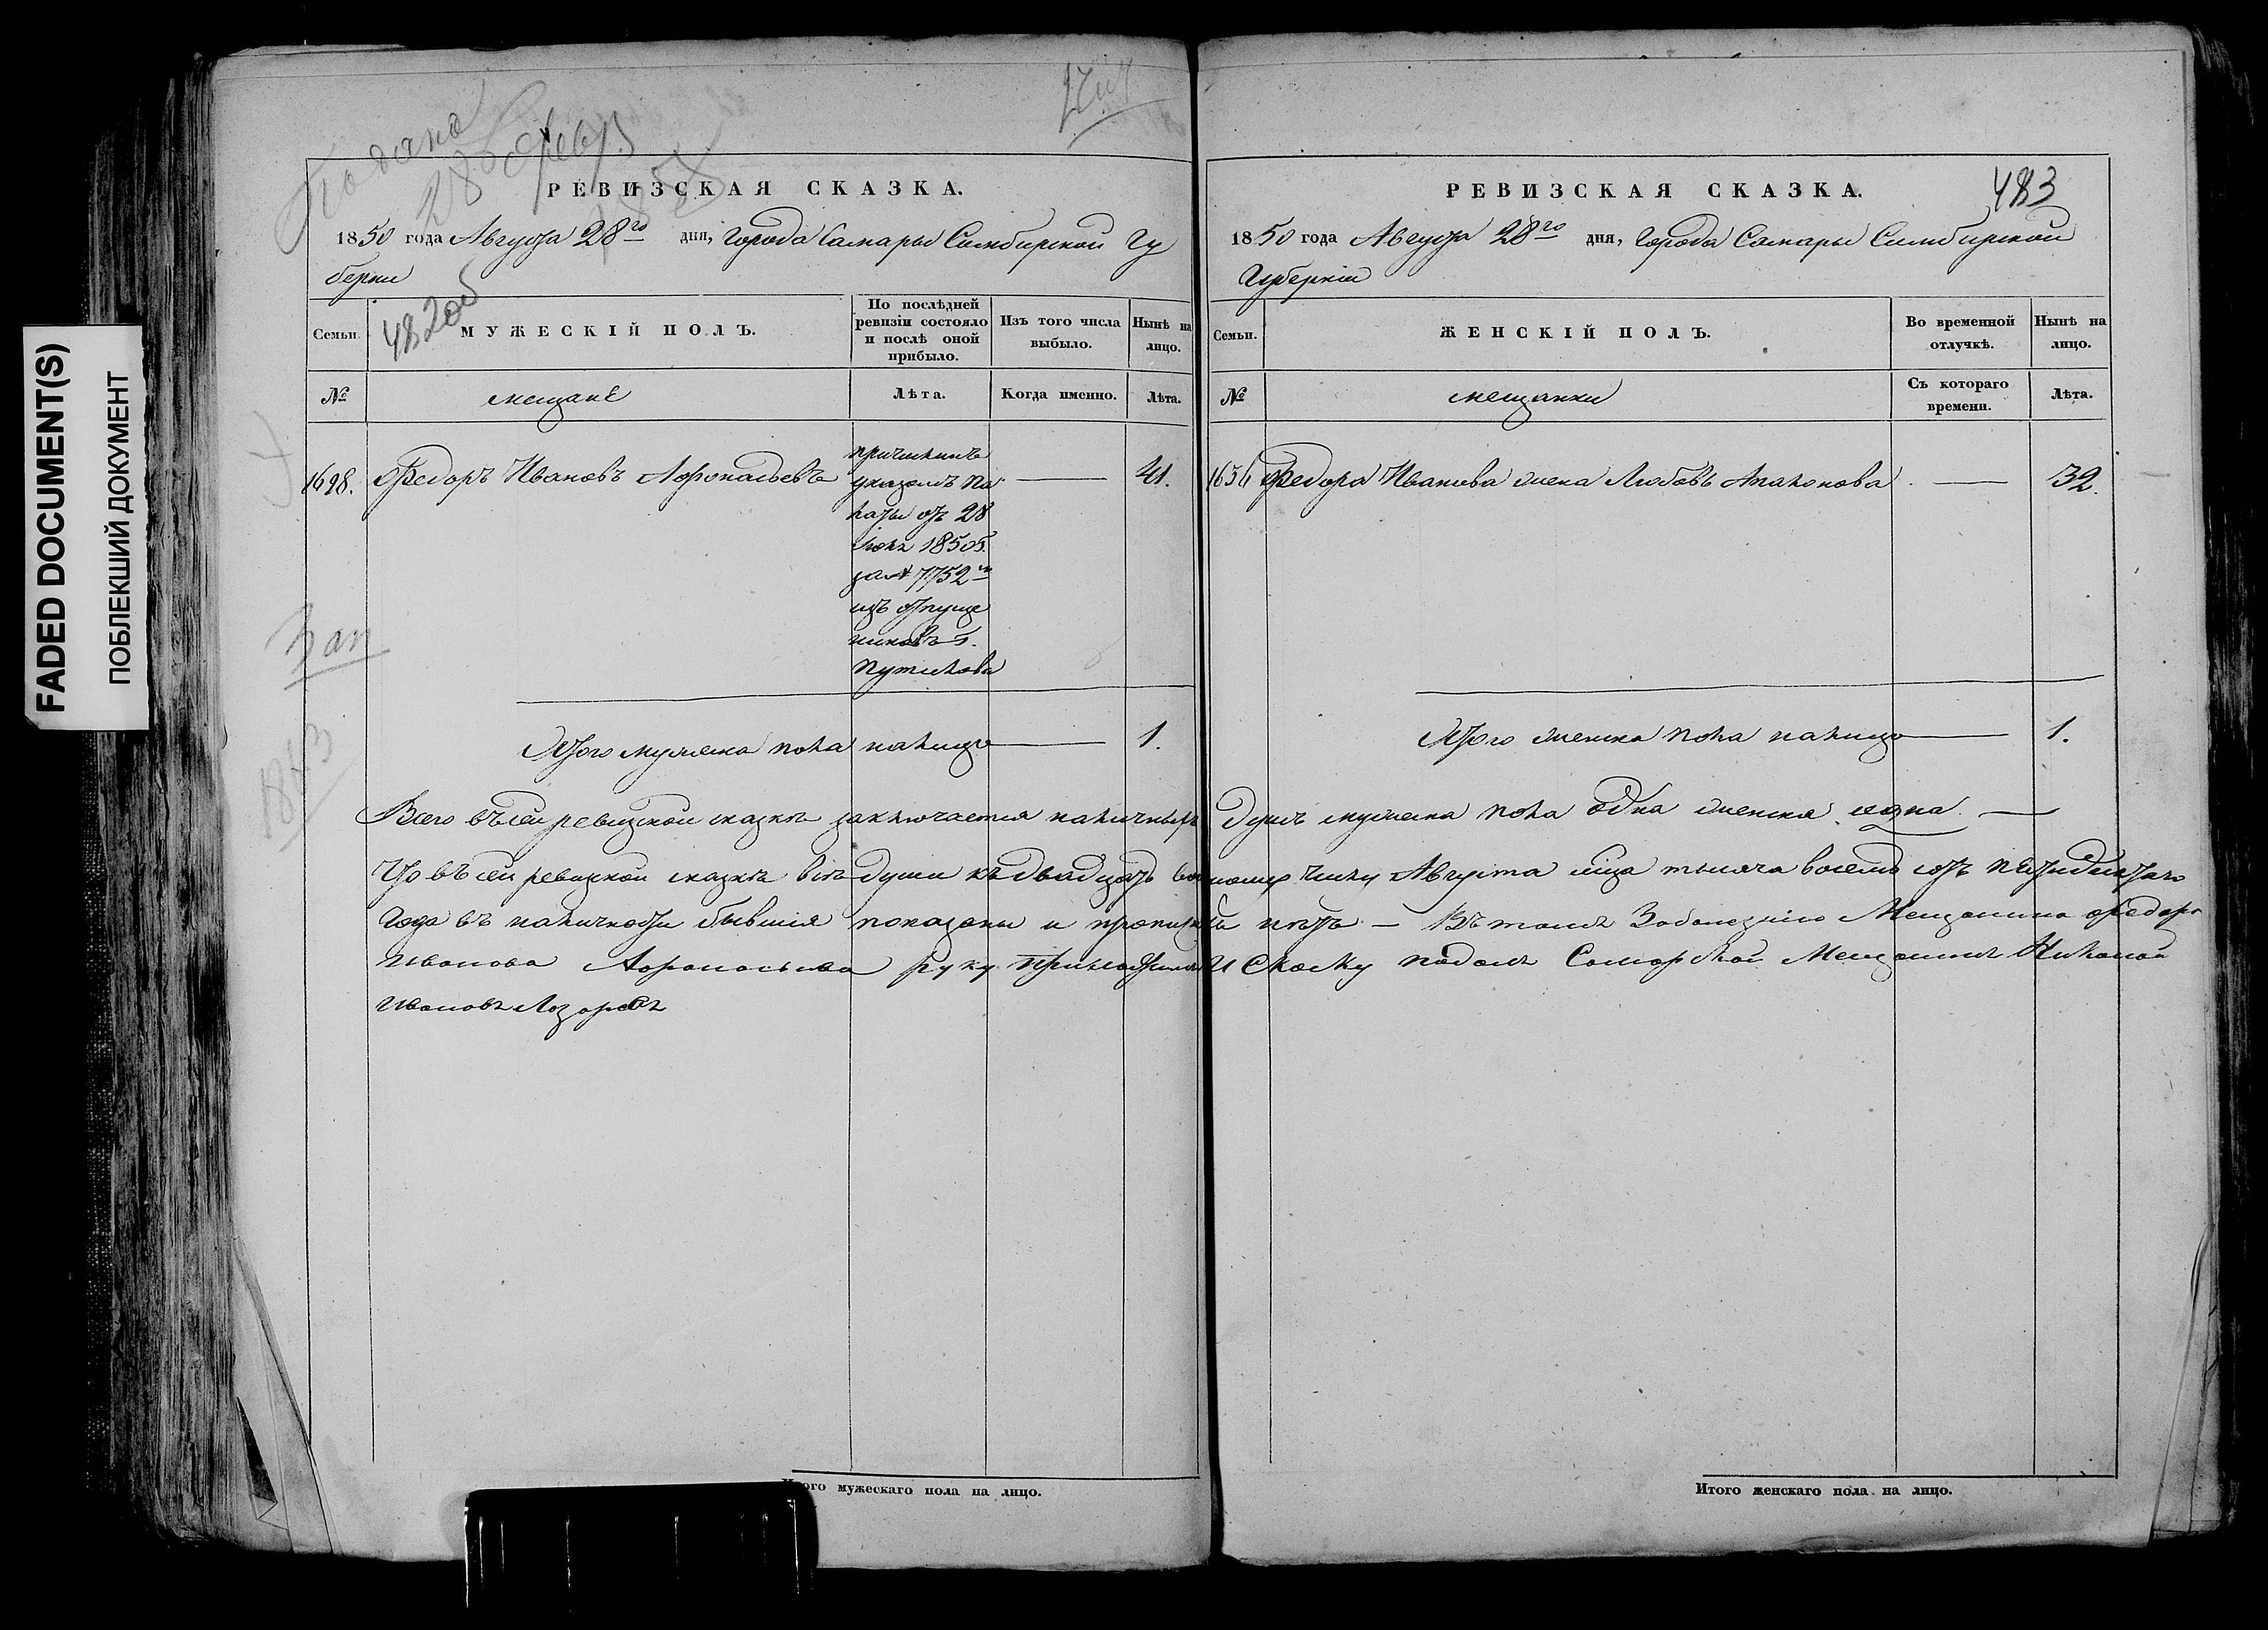 FADED DOCUMENT(S)
ПОБЛЕКШИЙ ДОКУМЕНТ
Подана
28 Февр
РЕВИЗСКАЯ СКАЗКА.
1850 года Августа 28го дня, Города Самары Симбирской Гу
берни
482об
Семьи. МУЖЕСКІЙ ПОЛЪ. По послѣдней ревизіи состояло и послѣ оной прибыло. Изъ того числа выбыло. Нынѣ на лицо.
№ мещане Лѣта. Когда именно. Лѣта.
1698. Федоръ Ивановъ Афонасьевъ 41.
причисленъ
указомъ Па
латы отъ 28
Июля 1850г.
за № 7,752м
изъ отпуще
никовъ г.
Путилова
Зап
1843
Итого мужеска пола налицо 1.
РЕВИЗСКАЯ СКАЗКА.
483
1850 года Августа 28го дня, Города Самары Симбирской
Губерніи
Семьи. ЖЕНСКІЙ ПОЛЪ. Во временной отлучкѣ. Нынѣ на лицо.
№ мещанки Съ котораго времени. Лѣта.
Федора Иванова жена Любовь 32.
Итого женска пола налицо 1.
Всего въ сей ревизской сказкѣ заключается наличныхъ душъ мужеска пола одна женска одна
Что въ сей ревизской сказкѣ всѣ души къ двадцать восьмому числу Августа мѣца тысяча восемь сотъ пятидесятаго
Года въ наличности бывшія показаны и прописки нѣтъ — Въ томъ Мещанина Федора
Иванова Афонасьева руку приложилъ И Скаску подалъ Самарской Мещанинъ Николай
Ивановъ Лазоревъ
Итого мужескаго пола на лицо.
Итого женскаго пола на лицо.